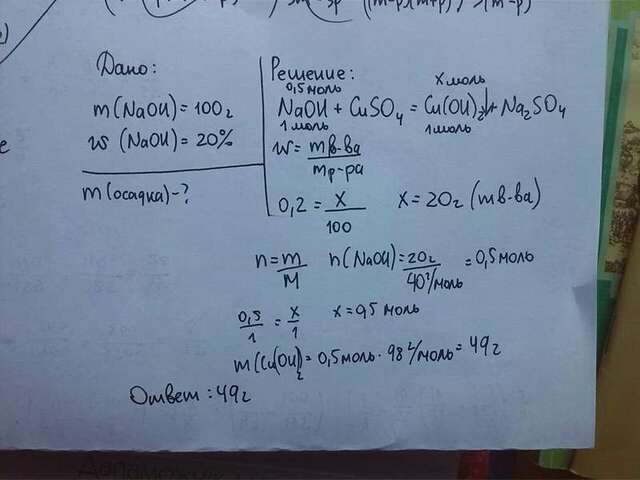 Дано:
m(NaOH) = 100г
w (NaOH) = 20%
m(осадка) - ?
Решение:
0,5 моль x моль
NaOH + CuSO4 = Cu(OH)2↓ + Na2SO4
1 моль 1 моль
w = mв-ва / mр-ра
0,2 = x / 100 x = 20г (mв-ва)
n = m / M n(NaOH) = 20г / 40г/моль = 0,5 моль
0,5 / 1 = x / 1 x = 0,5 моль
m(Cu(OH)2 = 0,5 моль · 98 г/моль = 49г
Ответ: 49г